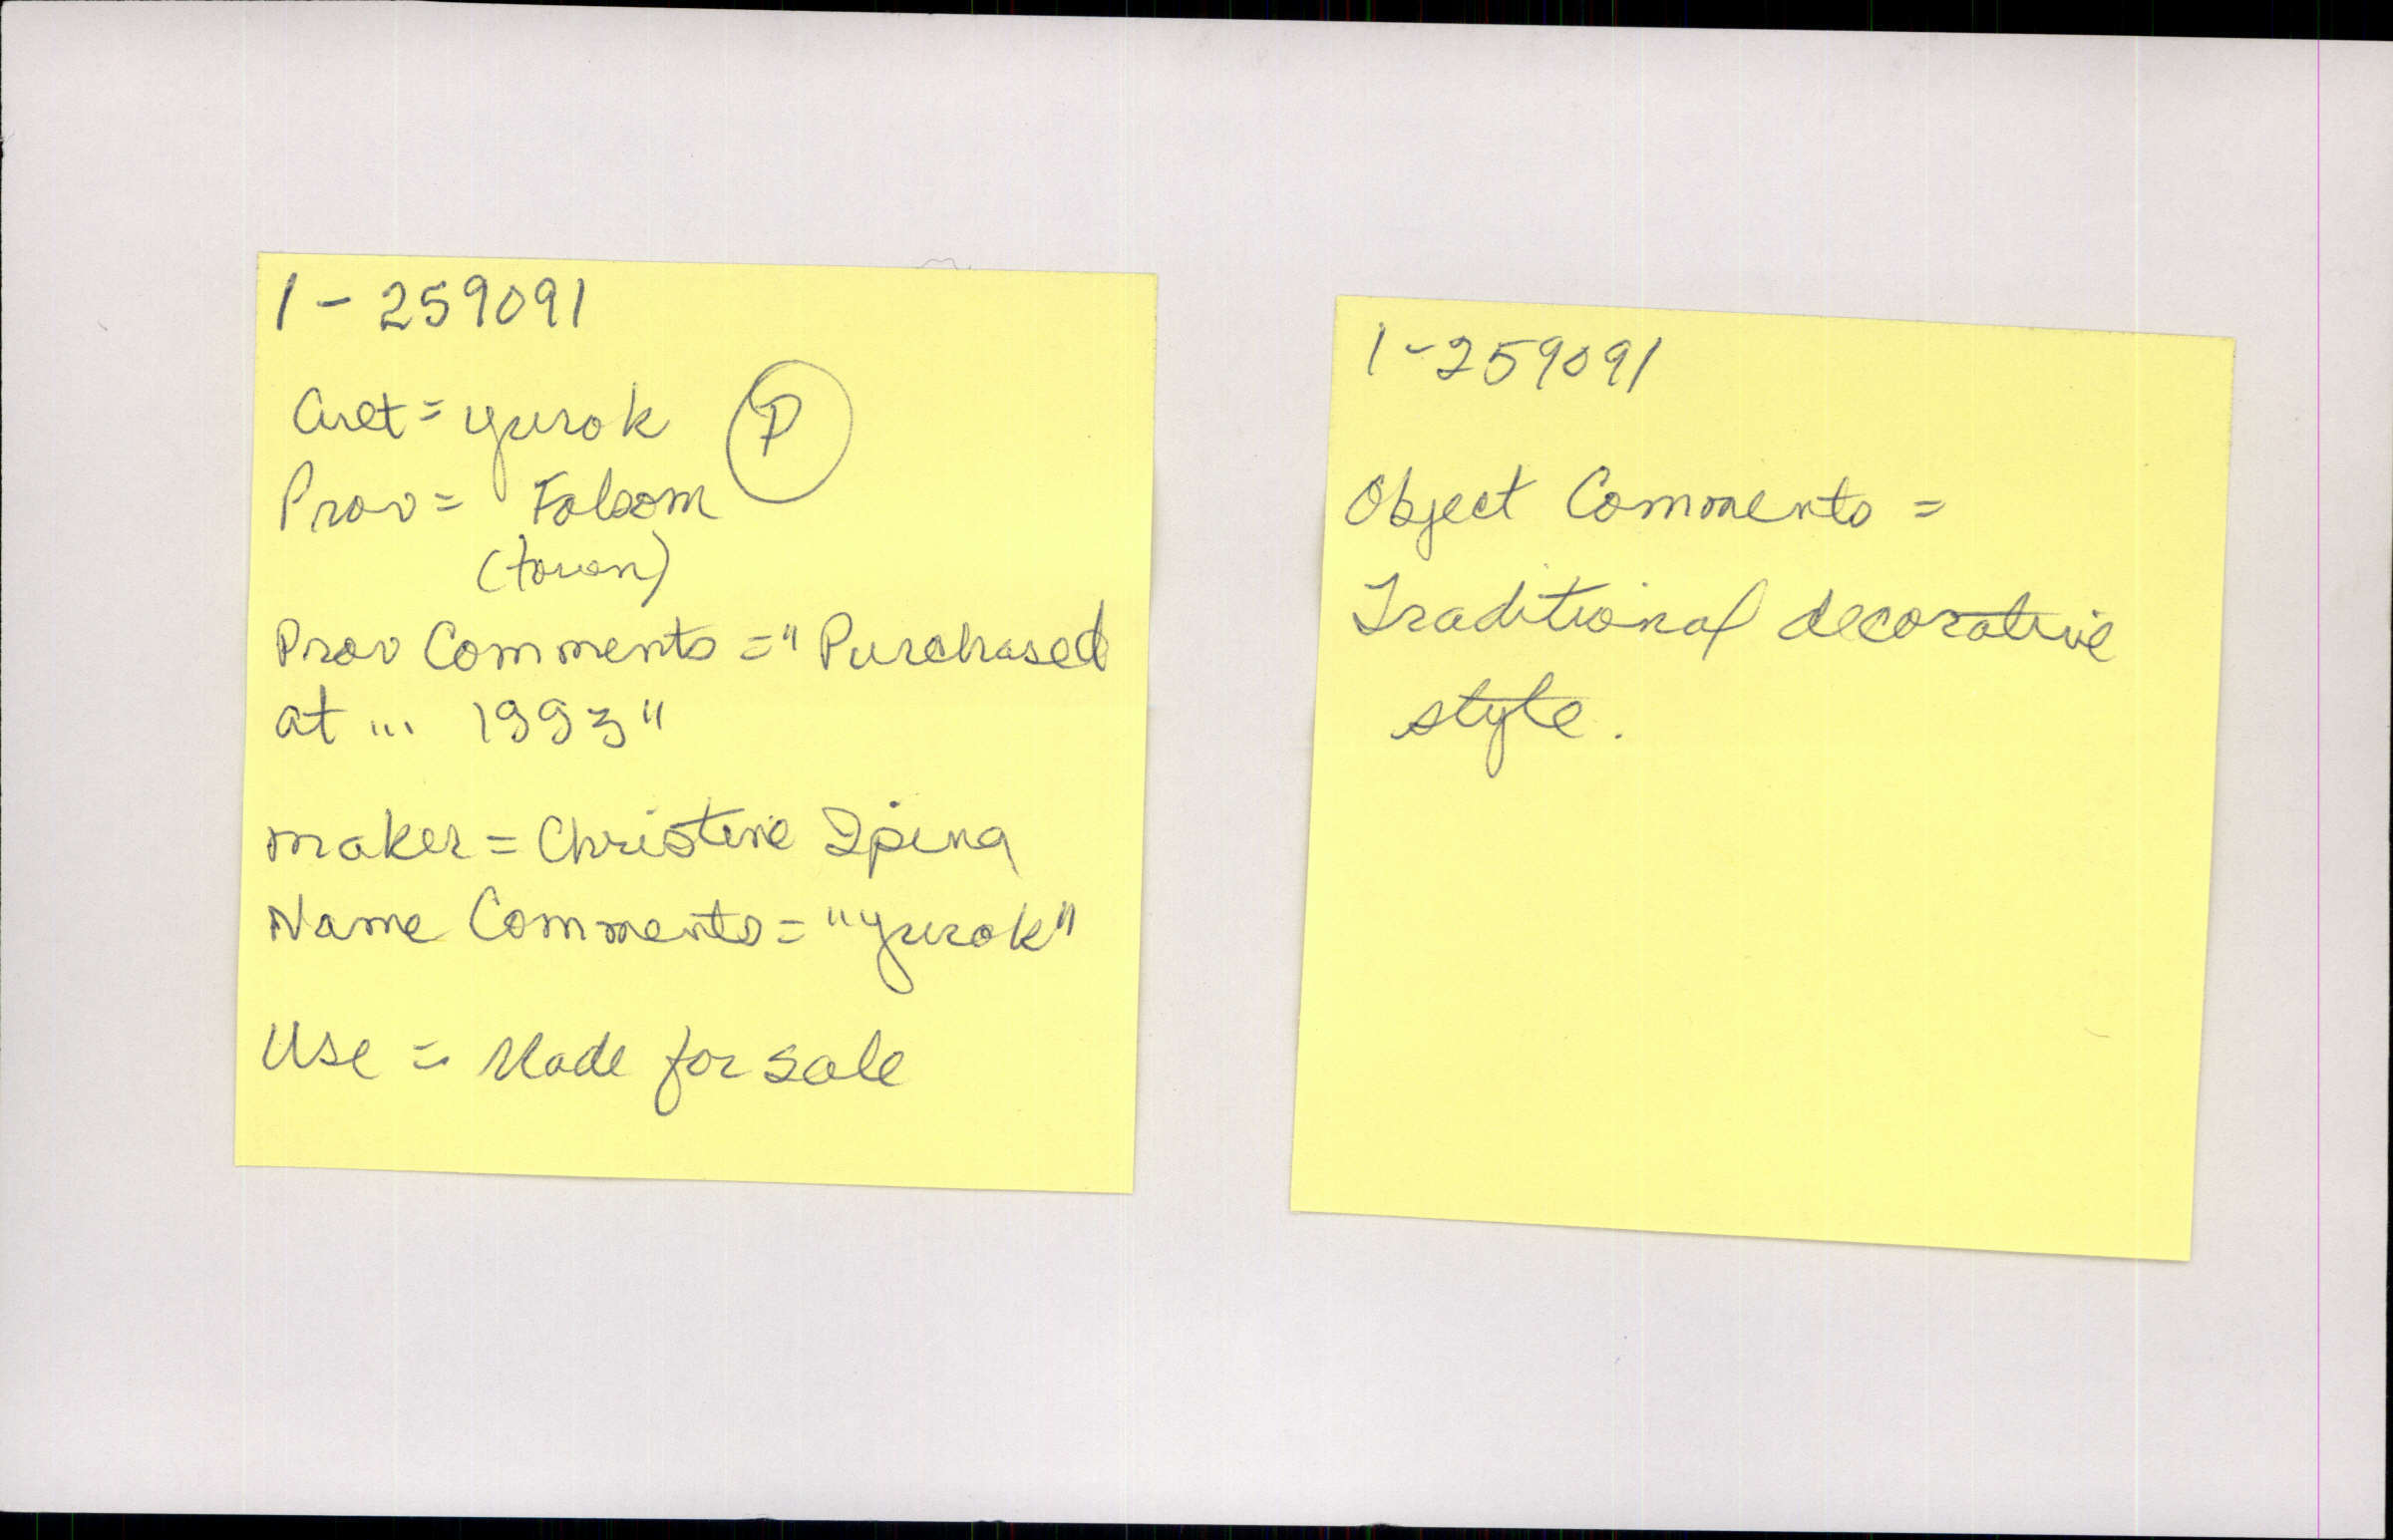 1-259091
Cult = Yurok (P)
Prov = Folsom
(town)
Prov Comments = "Purchased
at ... 1993"
Maker = Christine
Name Comments = "Yurok"
Use = Made for sale
1-259091
Object Comments =
Traditional decorative
style.